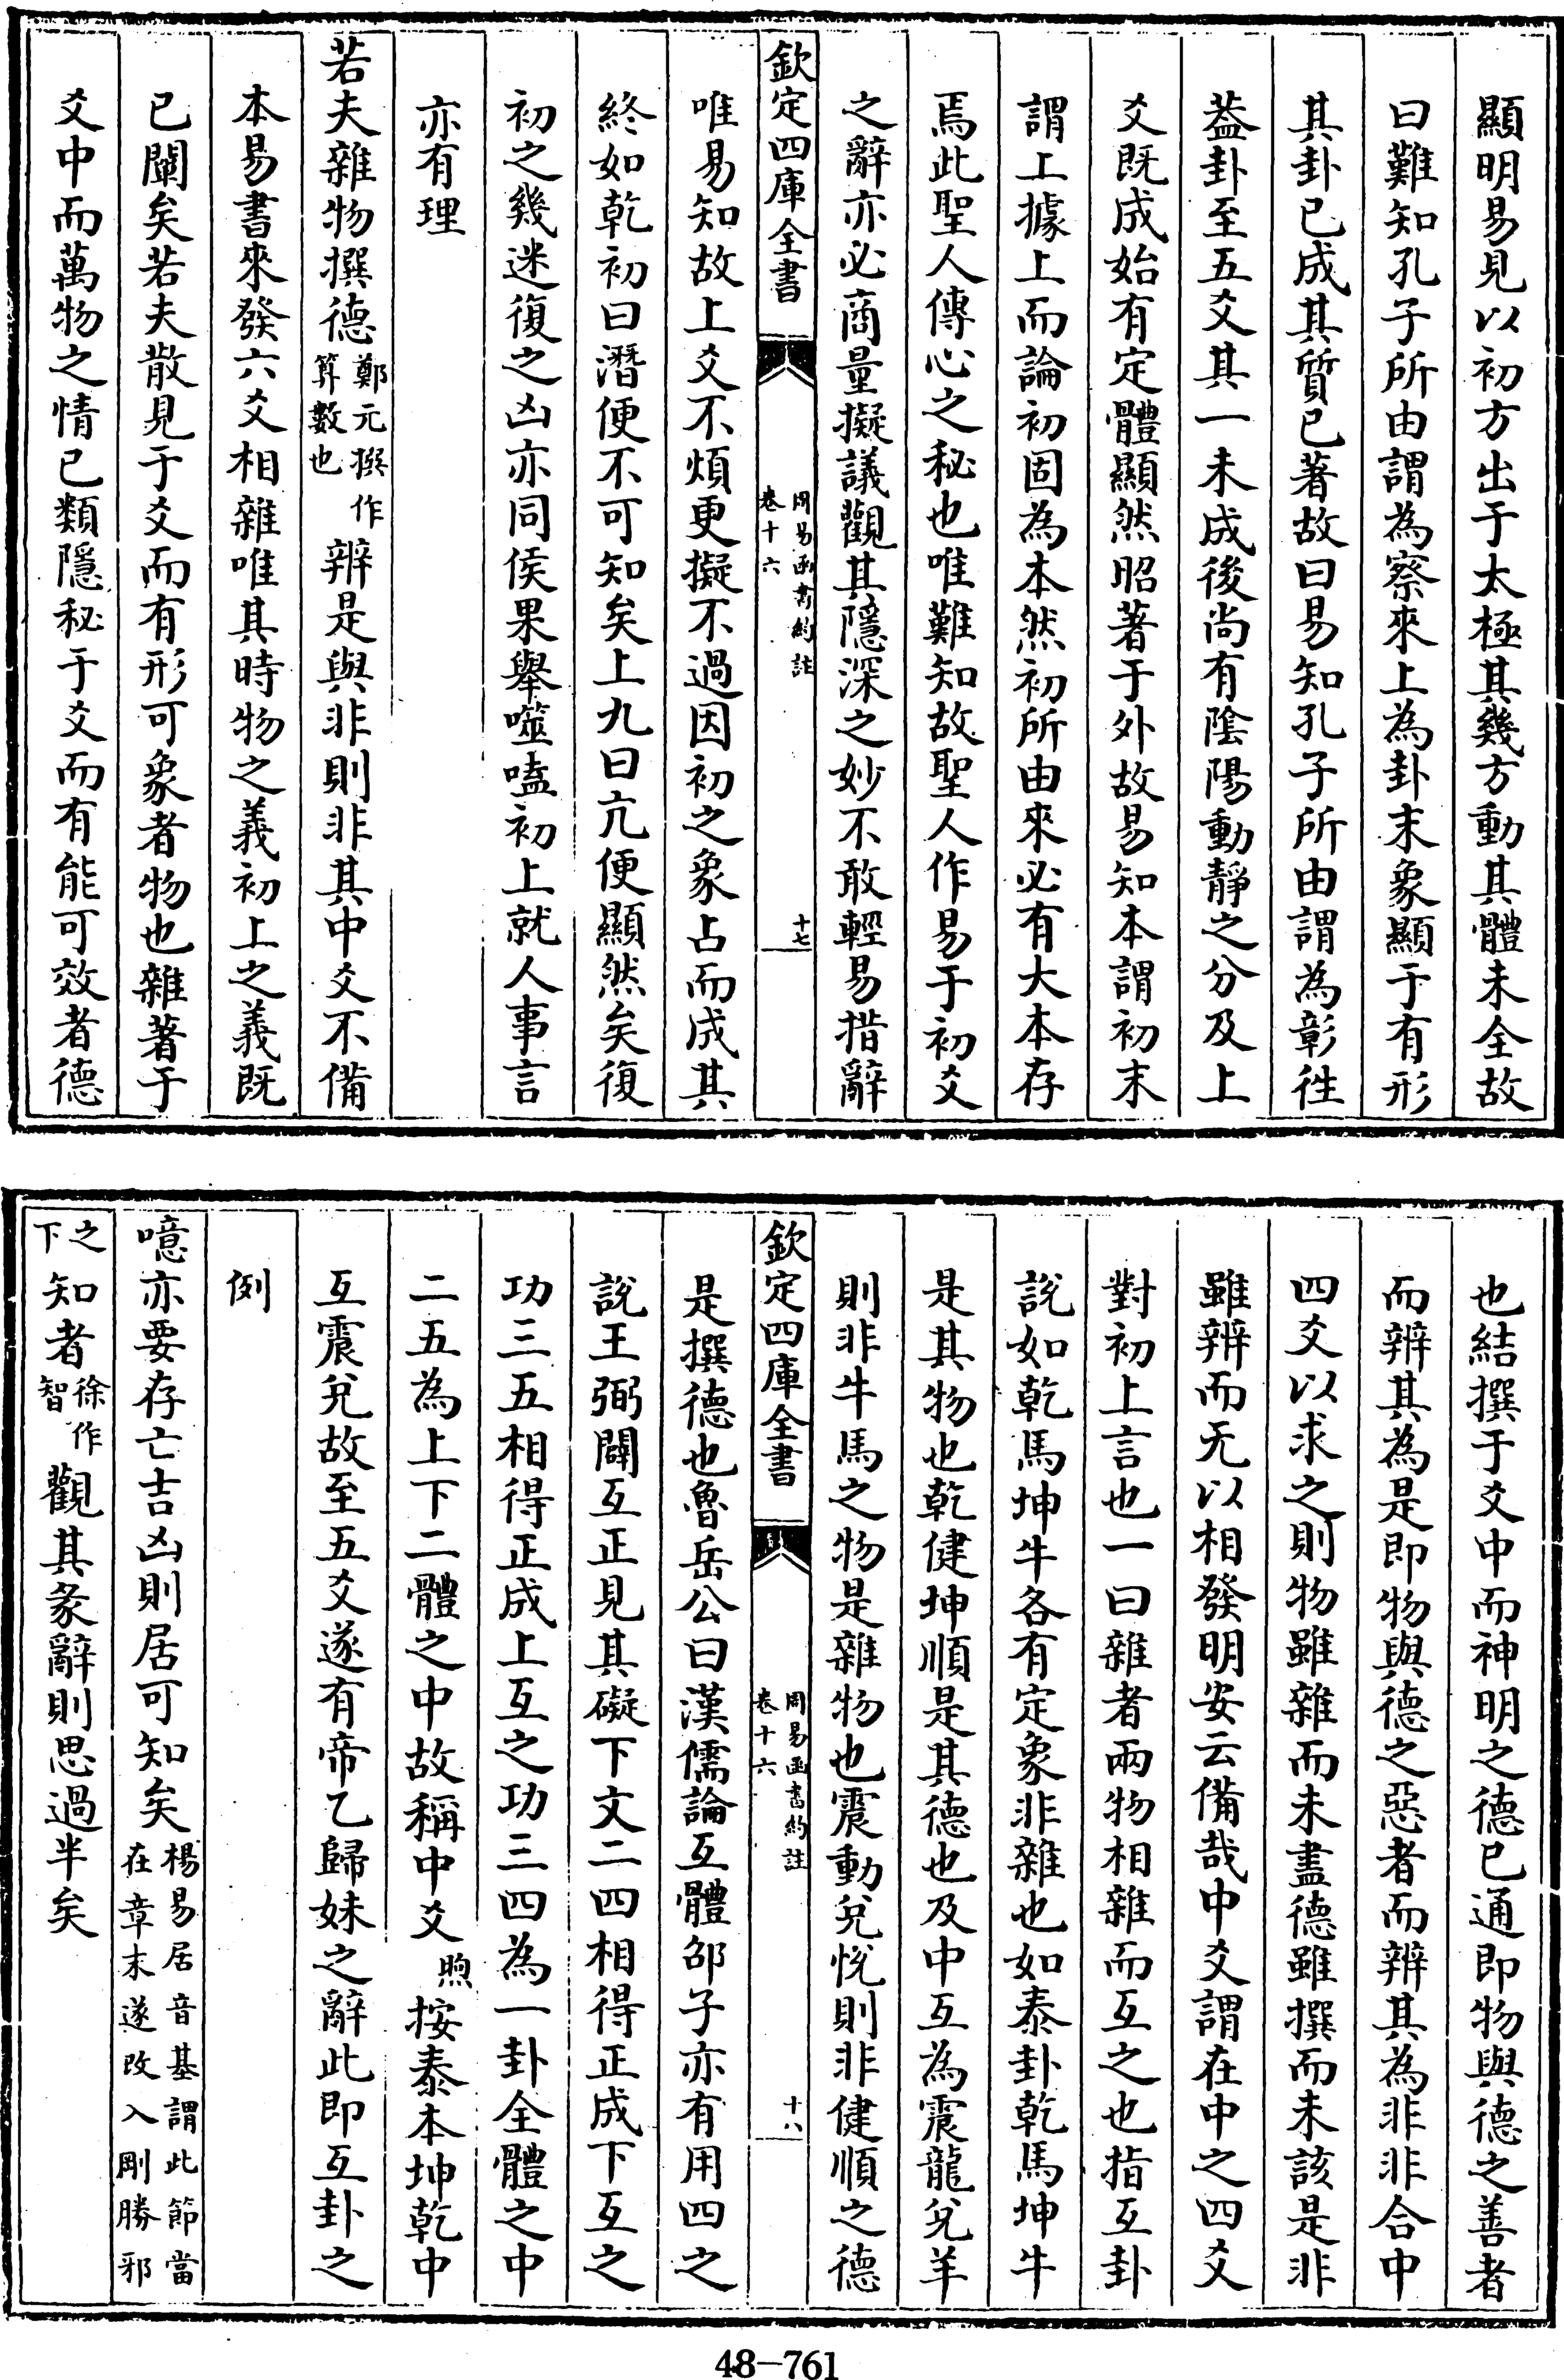 顯明易見以初方出于太極其幾方動其體未全故
曰難知孔子所由謂為察來上為卦末象顯于有形
其卦已成其質已著故曰易知孔子所由謂為彰徃
葢卦至五爻其一未成後尚有陰陽動靜之分及上
爻既成始有定體顯然昭著于外故易知本謂初末
謂上據上而論初固為本然初所由來必有大本存
焉此聖人傳心之秘也唯難知故聖人作易于初爻
之辭亦必商量擬議觀其隱深之妙不敢輕易措辭
欽定四庫全書
周易函書約註
卷十六
十七
唯易知故上爻不煩更擬不過因初之象占而成其
終如乾初曰潛便不可知矣上九曰亢便顯然矣復
初之幾迷復之凶亦同侯果舉噬嗑初上就人事言
亦有理
若夫雜物撰德鄭元撰作算數也辨是與非則非其中爻不備
本易書來發六爻相雜唯其時物之義初上之義既
已闡矣若夫散見于爻而有形可象者物也雜著于
爻中而萬物之情已類隱秘于爻而有能可效者德
也結撰于爻中而神明之德已通即物與德之善者
而辨其為是即物與德之惡者而辨其為非非合中
四爻以求之則物雖雜而未盡德雖撰而未該是非
雖辨而无以相發明安云備哉中爻謂在中之四爻
對初上言也一曰雜者兩物相雜而互之也指互卦
說如乾馬坤牛各有定象非雜也如泰卦乾馬坤牛
是其物也乾健坤順是其德也及中互為震龍兌羊
則非牛馬之物是雜物也震動兌悅則非健順之德
欽定四庫全書
周易函書約註
卷十六
十八
是撰德也魯岳公曰漢儒論互體邵子亦有用四之
說王弼闢互正見其礙下文二四相得正成下互之
功三五相得正成上互之功三四為一卦全體之中
二五為上下二體之中故稱中爻煦按泰本坤乾中
互震兌故至五爻遂有帝乙歸妹之辭此即互卦之
例
噫亦要存亡吉凶則居可知矣楊易居音基謂此節當在章末遂改入剛勝邪
之下知者徐作智觀其彖辭則思過半矣
48-761